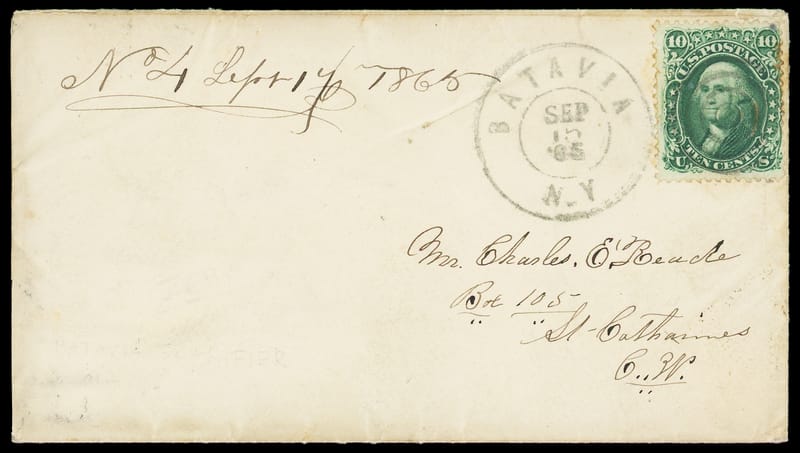 No 4 Sept 14/ 1865
BATAVIA
SEP
15
'65
N.Y
10 10
U.S. POSTAGE
TEN CENTS
U S
Mr. Charles. E. Reade
Box 105
St Catharines
C.. W.